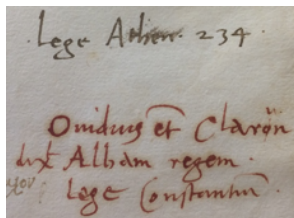 .Lege Athen. 234.
Ouidius et Clarōn
dux Albam regem.
Lege Constantiū